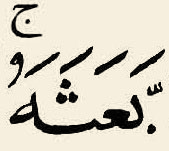 ج
بَّعَثَهُ